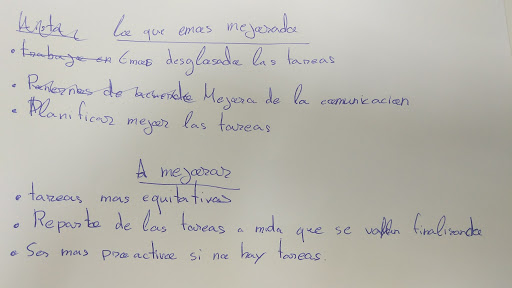 Lo que emos mejorado
• Emos desglosado las tareas
• Mejora de la comunicacion
• Planificar mejor las tareas
A mejorar
• tareas mas equitativas
• Reparto de las tareas a mda que se vallan finalizando
• Ser mas proactivo si no hay tareas.